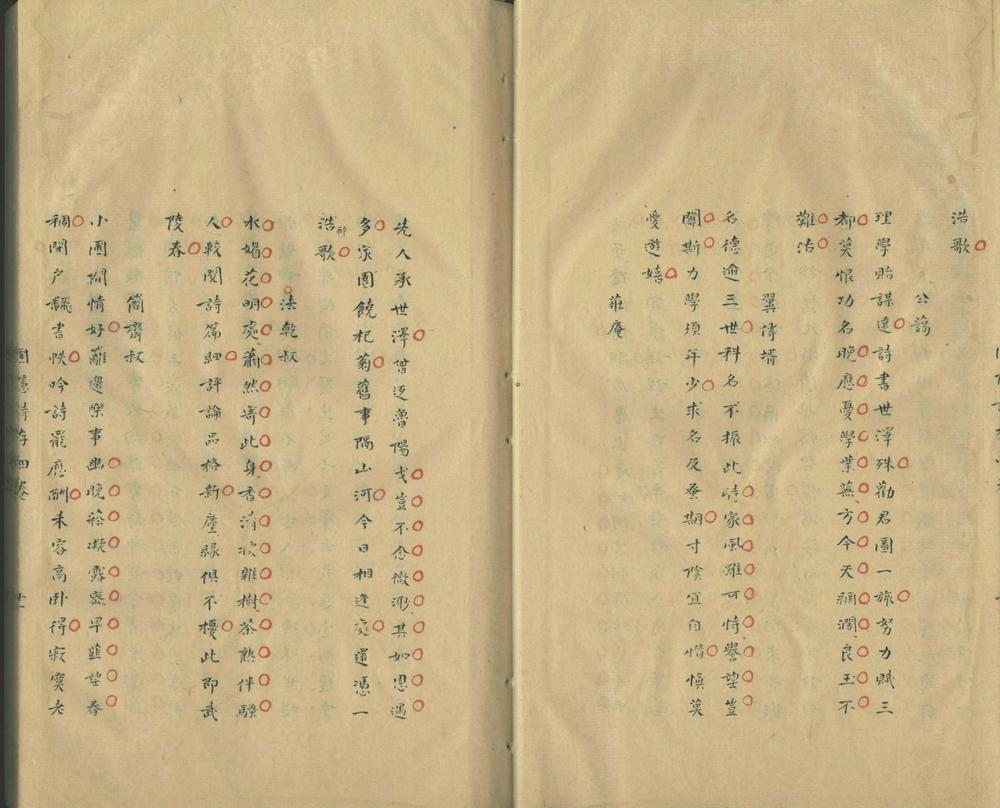 浩歌
公謁
理學貽謀遠詩書世澤殊勸君圖一旅努力賦三
都莫恨功名晚應憂學業蕪方今天網濶良玉不
難沽
翼傳壻
名德逾三世科名不振此時家風雖可恃譽望豈
關斯力學須年少求名及壼期寸陰宜自惜慎莫
愛遊嬉
莊庵
先人承世澤曾返魯陽戈豈不念微渺其如恩遇
多家園饒杞菊舊事隔山河今日相逢處還憑一
醉浩歌
法乾叔
水媚花明處蕭然寄此身香清欣雜樹茶熟伴騷
人較閱詩篇細評論品格新塵緣俱不擾此即武
陵春
簡齋叔
小園閒情好籬邊樂事幽晚菘凝露密早韭望春
稠開户飜書帙吟詩罷應酬未容高卧得寂寞老